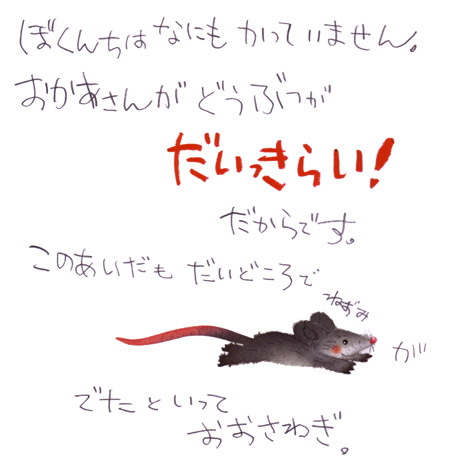 ぼくんちは なにも かっていません。
おかあさんが どうぶつが
だいっきらい!
だからです。
このあいだも だいどころで
ねずみ
が
でた といって
おおさわぎ。